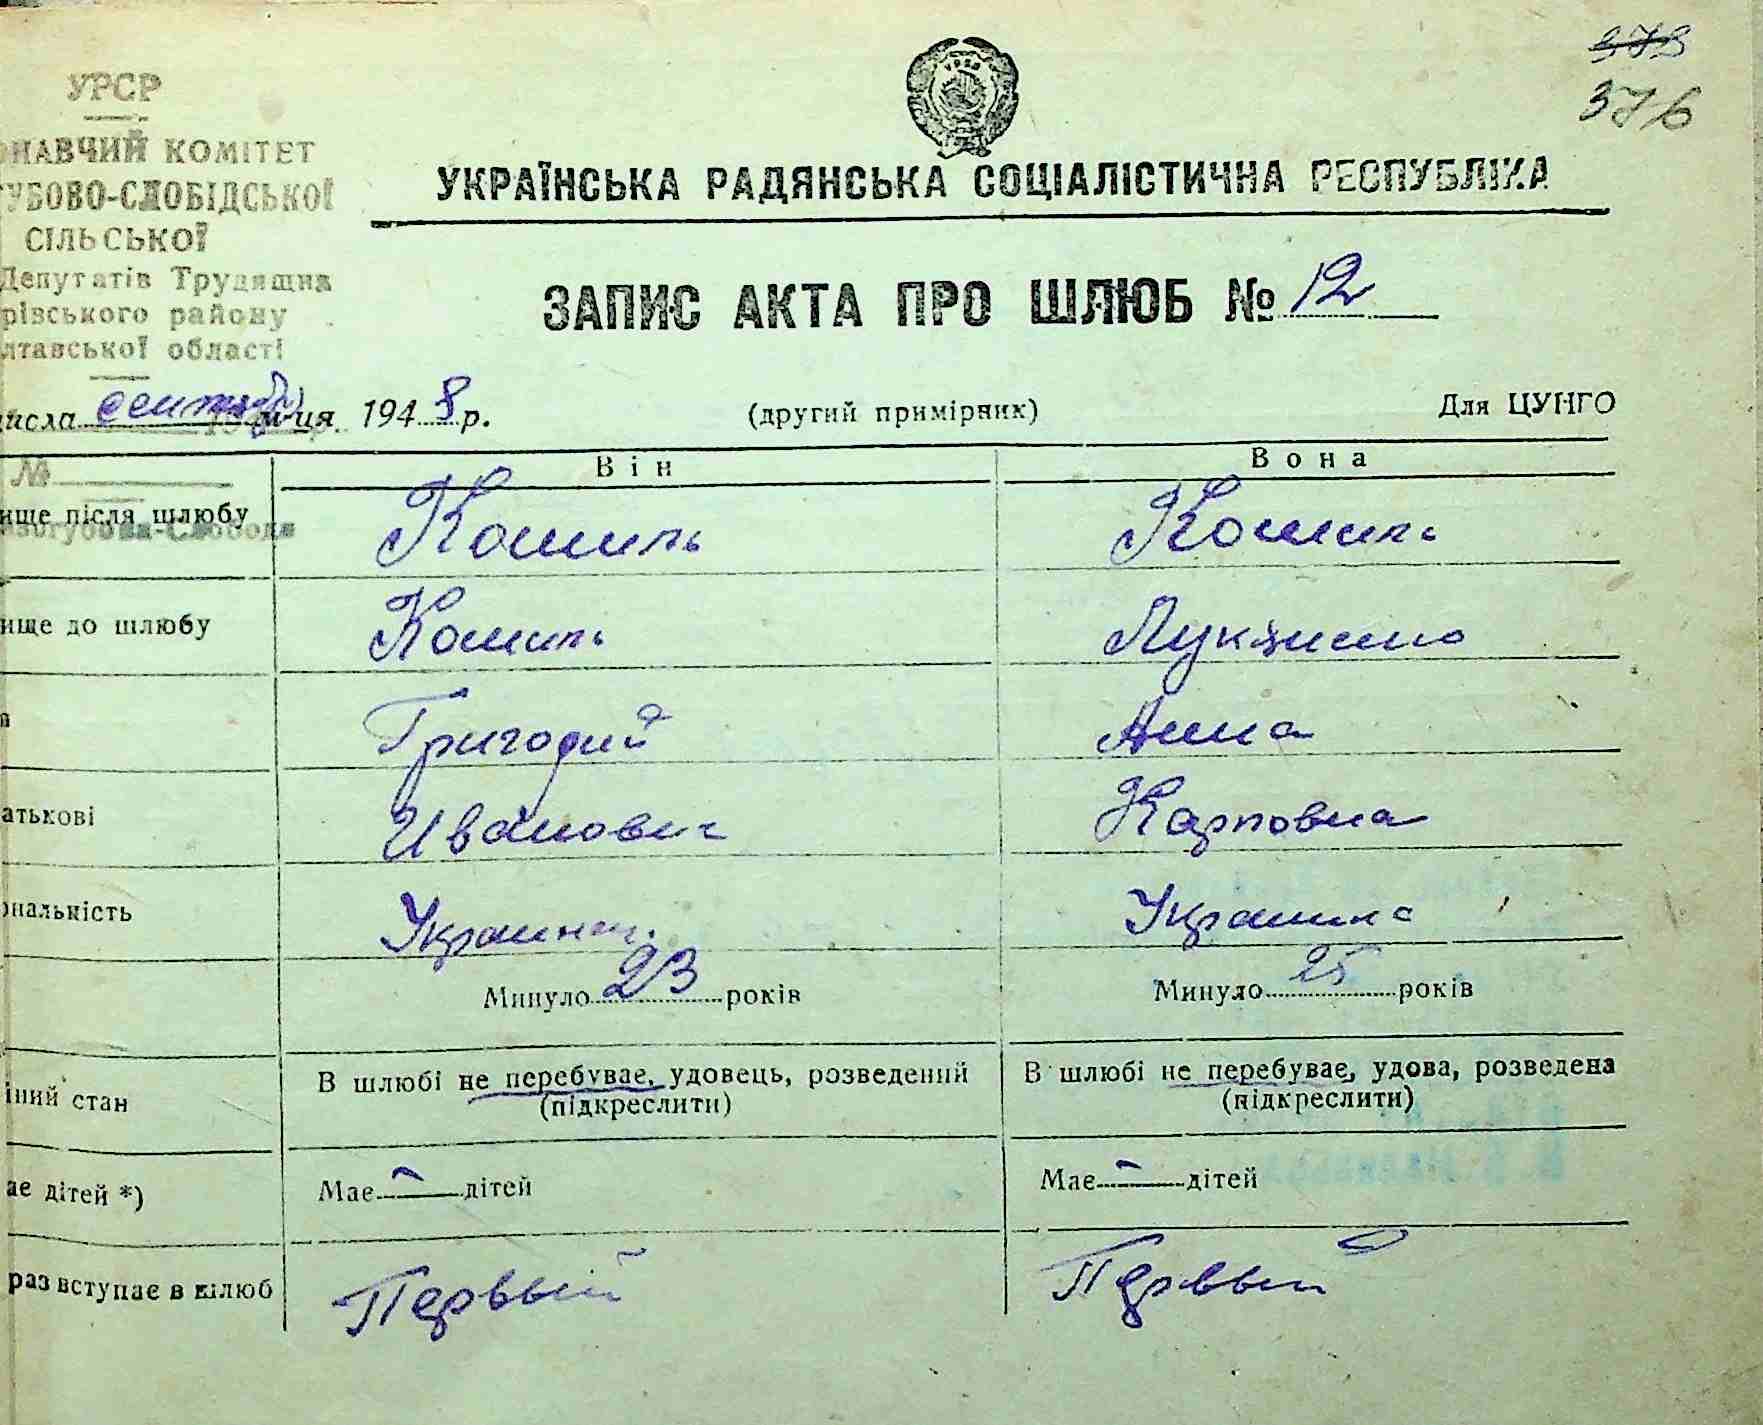 373
376
УРСР
НАВЧИЙ КОМІТЕТ
УБОВО-СЛОБІДСЬКОЇ
СІЛЬСЬКОЇ
Депутатів Трудящих
рівського району
лтавської області
УКРАЇНСЬКА РАДЯНСЬКА СОЦІАЛІСТИЧНА РЕСПУБЛІКА
ЗАПИС АКТА ПРО ШЛЮБ № 12
исла сентября м-ця 1948 р. (другий примірник) Для ЦУНГО
№
Він Вона
ище після шлюбу Кошиль Кошиль
ище до шлюбу Кошиль Лукяненко
Григорий Анна
атькові Иванович Карповна
ональність Украинец. Украинка
Минуло 23 років Минуло 25 років
ний стан В шлюбі не перебуває, удовець, розведений В шлюбі не перебуває, удова, розведена
(підкреслити) (підкреслити)
ає дітей *) Має – дітей Має – дітей
раз вступає в шлюб Первый Первый